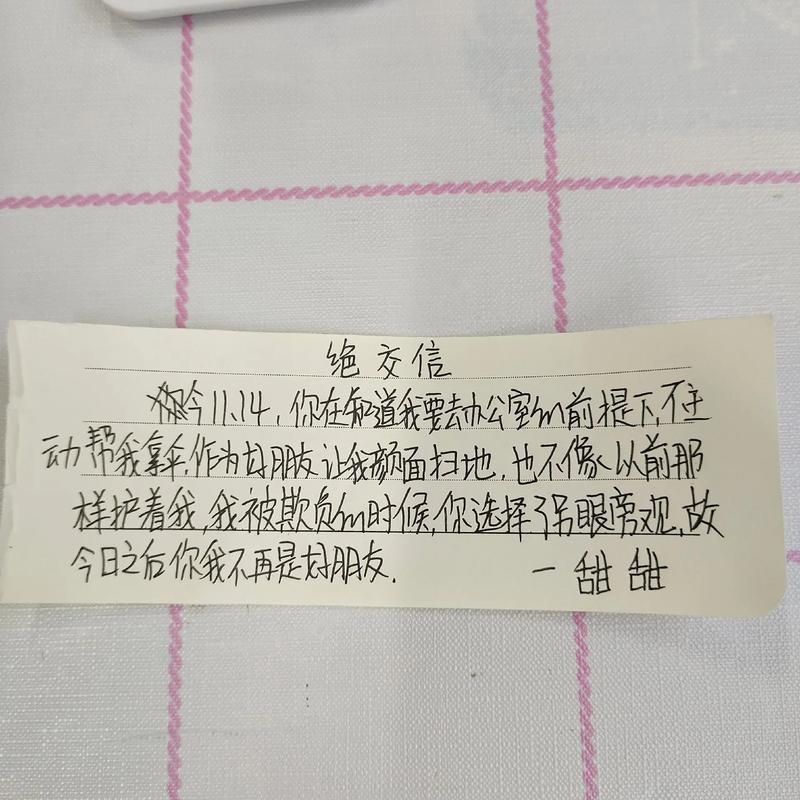 绝交信
今11.14，你在知道我要去办公室的前提下，不主
动帮我拿伞，作为好朋友让我颜面扫地，也不像以前那
样护着我，我被欺负的时候，你选择了吊眼旁观，故
今日之后你我不再是好朋友.
一 甜甜